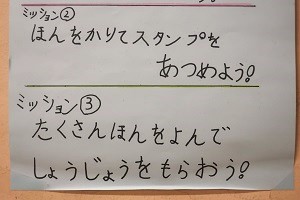 ミッション②
ほんをかりてスタンプを
あつめよう!
ミッション③
たくさんほんをよんで
しょうじょうをもらおう!